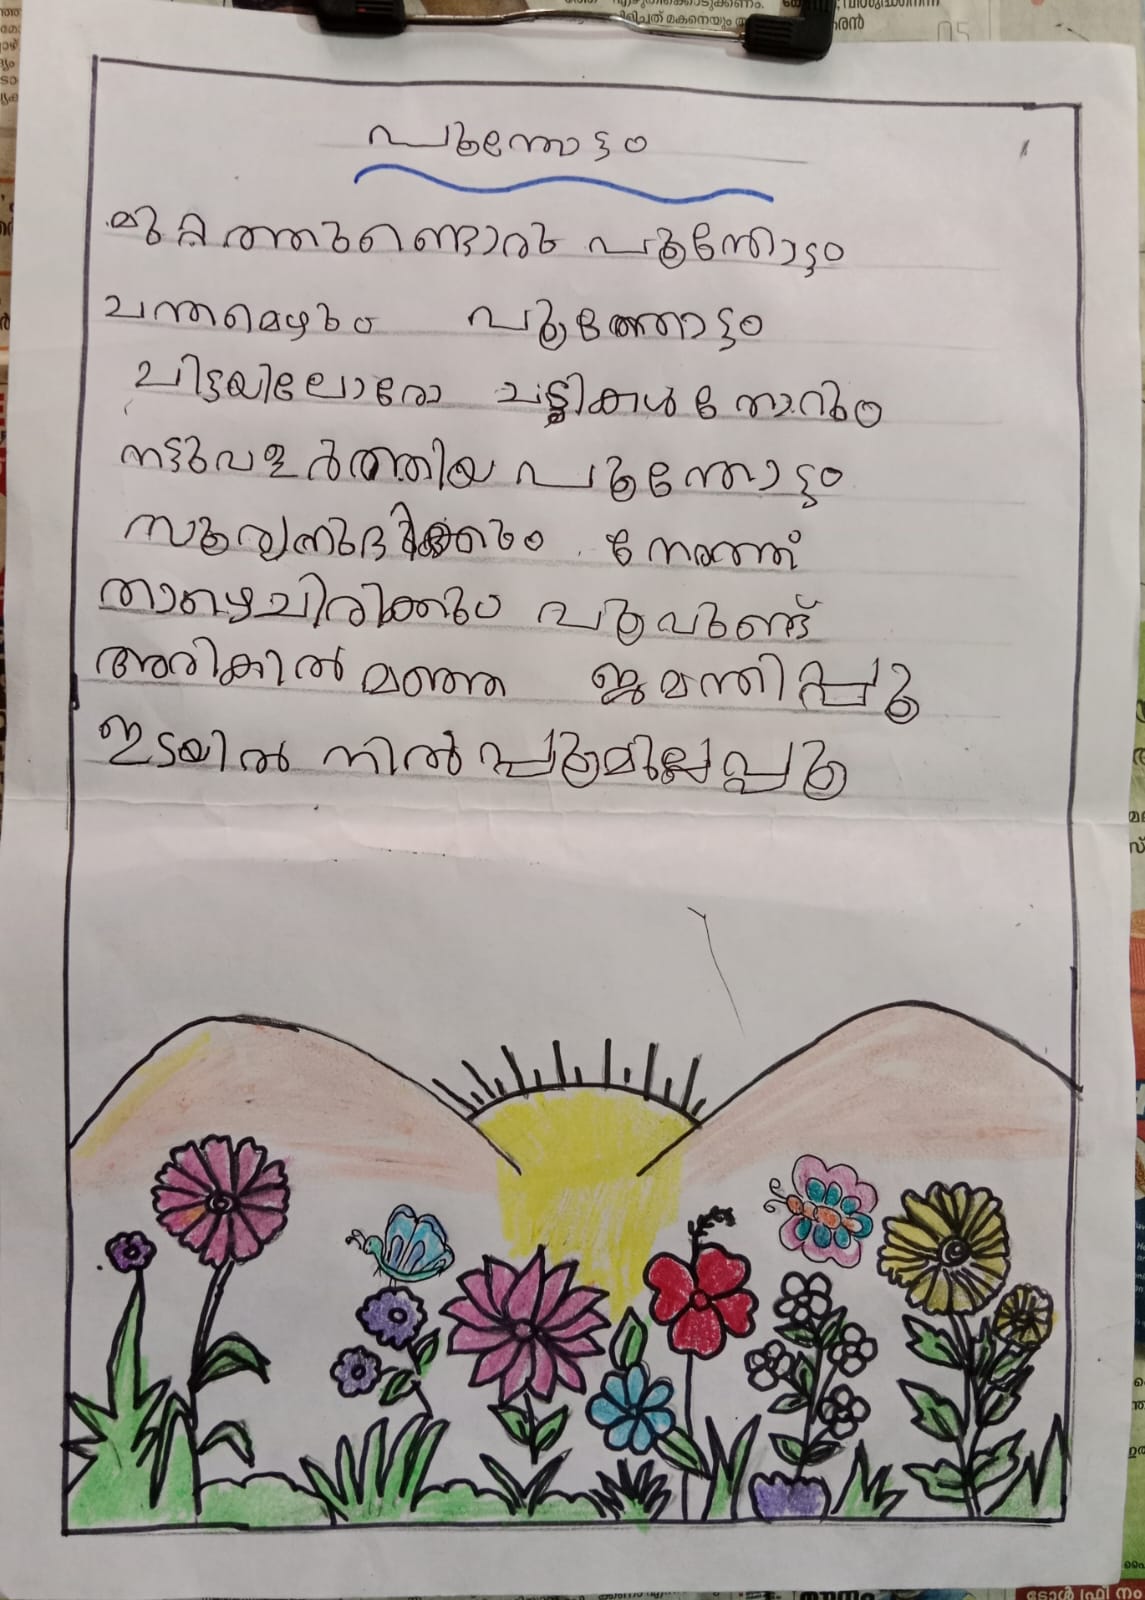 പൂന്തോട്ടം
മുറ്റത്തുണ്ടൊരു പൂന്തോട്ടം
ചന്തമെഴും പൂന്തോട്ടം
ചിട്ടയിലോരോ ചട്ടികൾ തോറും
നട്ടുവളർത്തിയ പൂന്തോട്ടം
സൂര്യനുദിക്കും നേരത്ത്
താഴെചിരിക്കും പൂവുണ്ട്
അരികിൽ മഞ്ഞ ജമന്തിപ്പൂ
ഇടയിൽ നിൽപ്പൂമുല്ലപ്പൂ